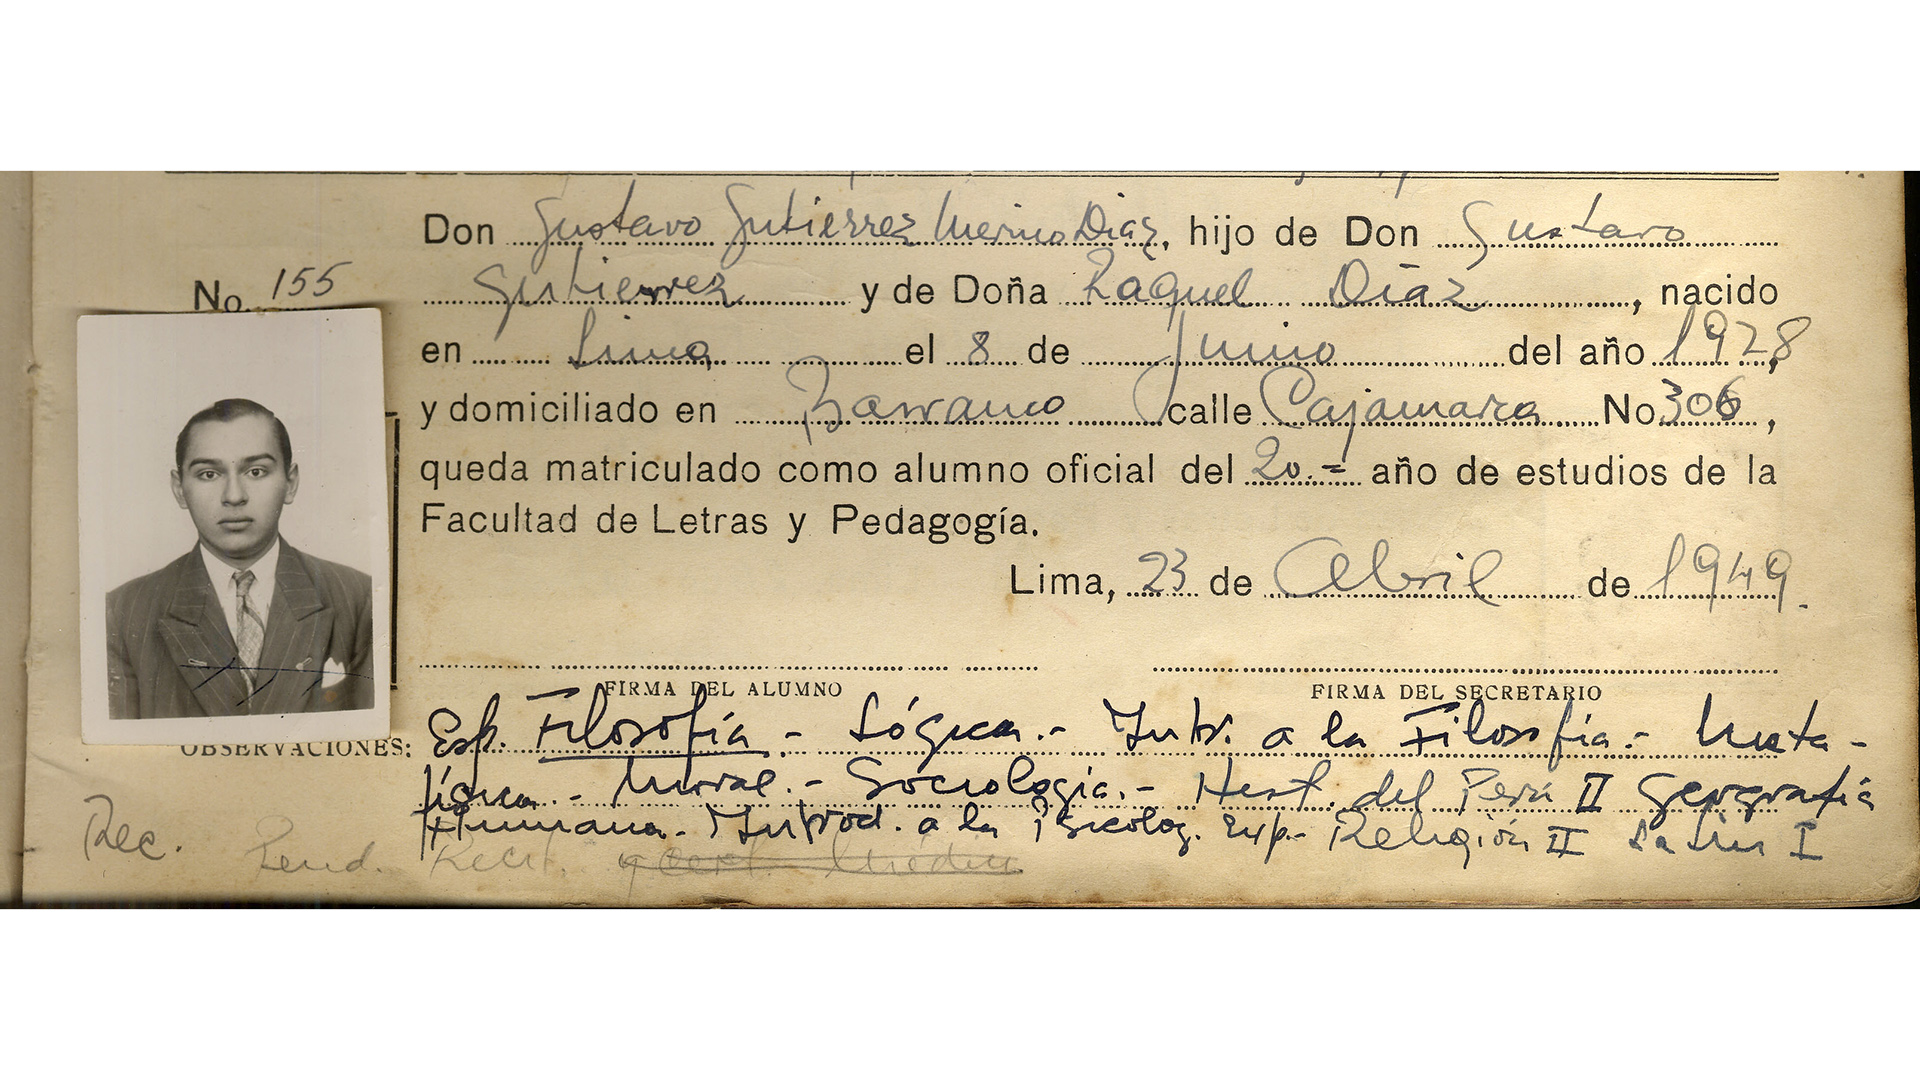 Don Gustavo Gutiérrez Merino Diaz, hijo de Don Gustavo
No. 155
Gutierrez y de Doña Raquel Díaz, nacido
en Lima el 8 de Junio del año 1928,
y domiciliado en Barranco calle Cajamarca No 306,
queda matriculado como alumno oficial del 2o.= año de estudios de la
Facultad de Letras y Pedagogía.
Lima, 23 de Abril de 1949.
FIRMA DEL ALUMNO FIRMA DEL SECRETARIO
OBSERVACIONES: Esp. Filosofía.- Lógica.- Intr. a la Filosofía.- Meta-
física.- Moral.- Sociología.- Hist. del Perú II Geografía
Humana.- Introd. a la Psicolog. Exp.- Religión II Latín I
Rec. Pend. Recib. y cert. Médico